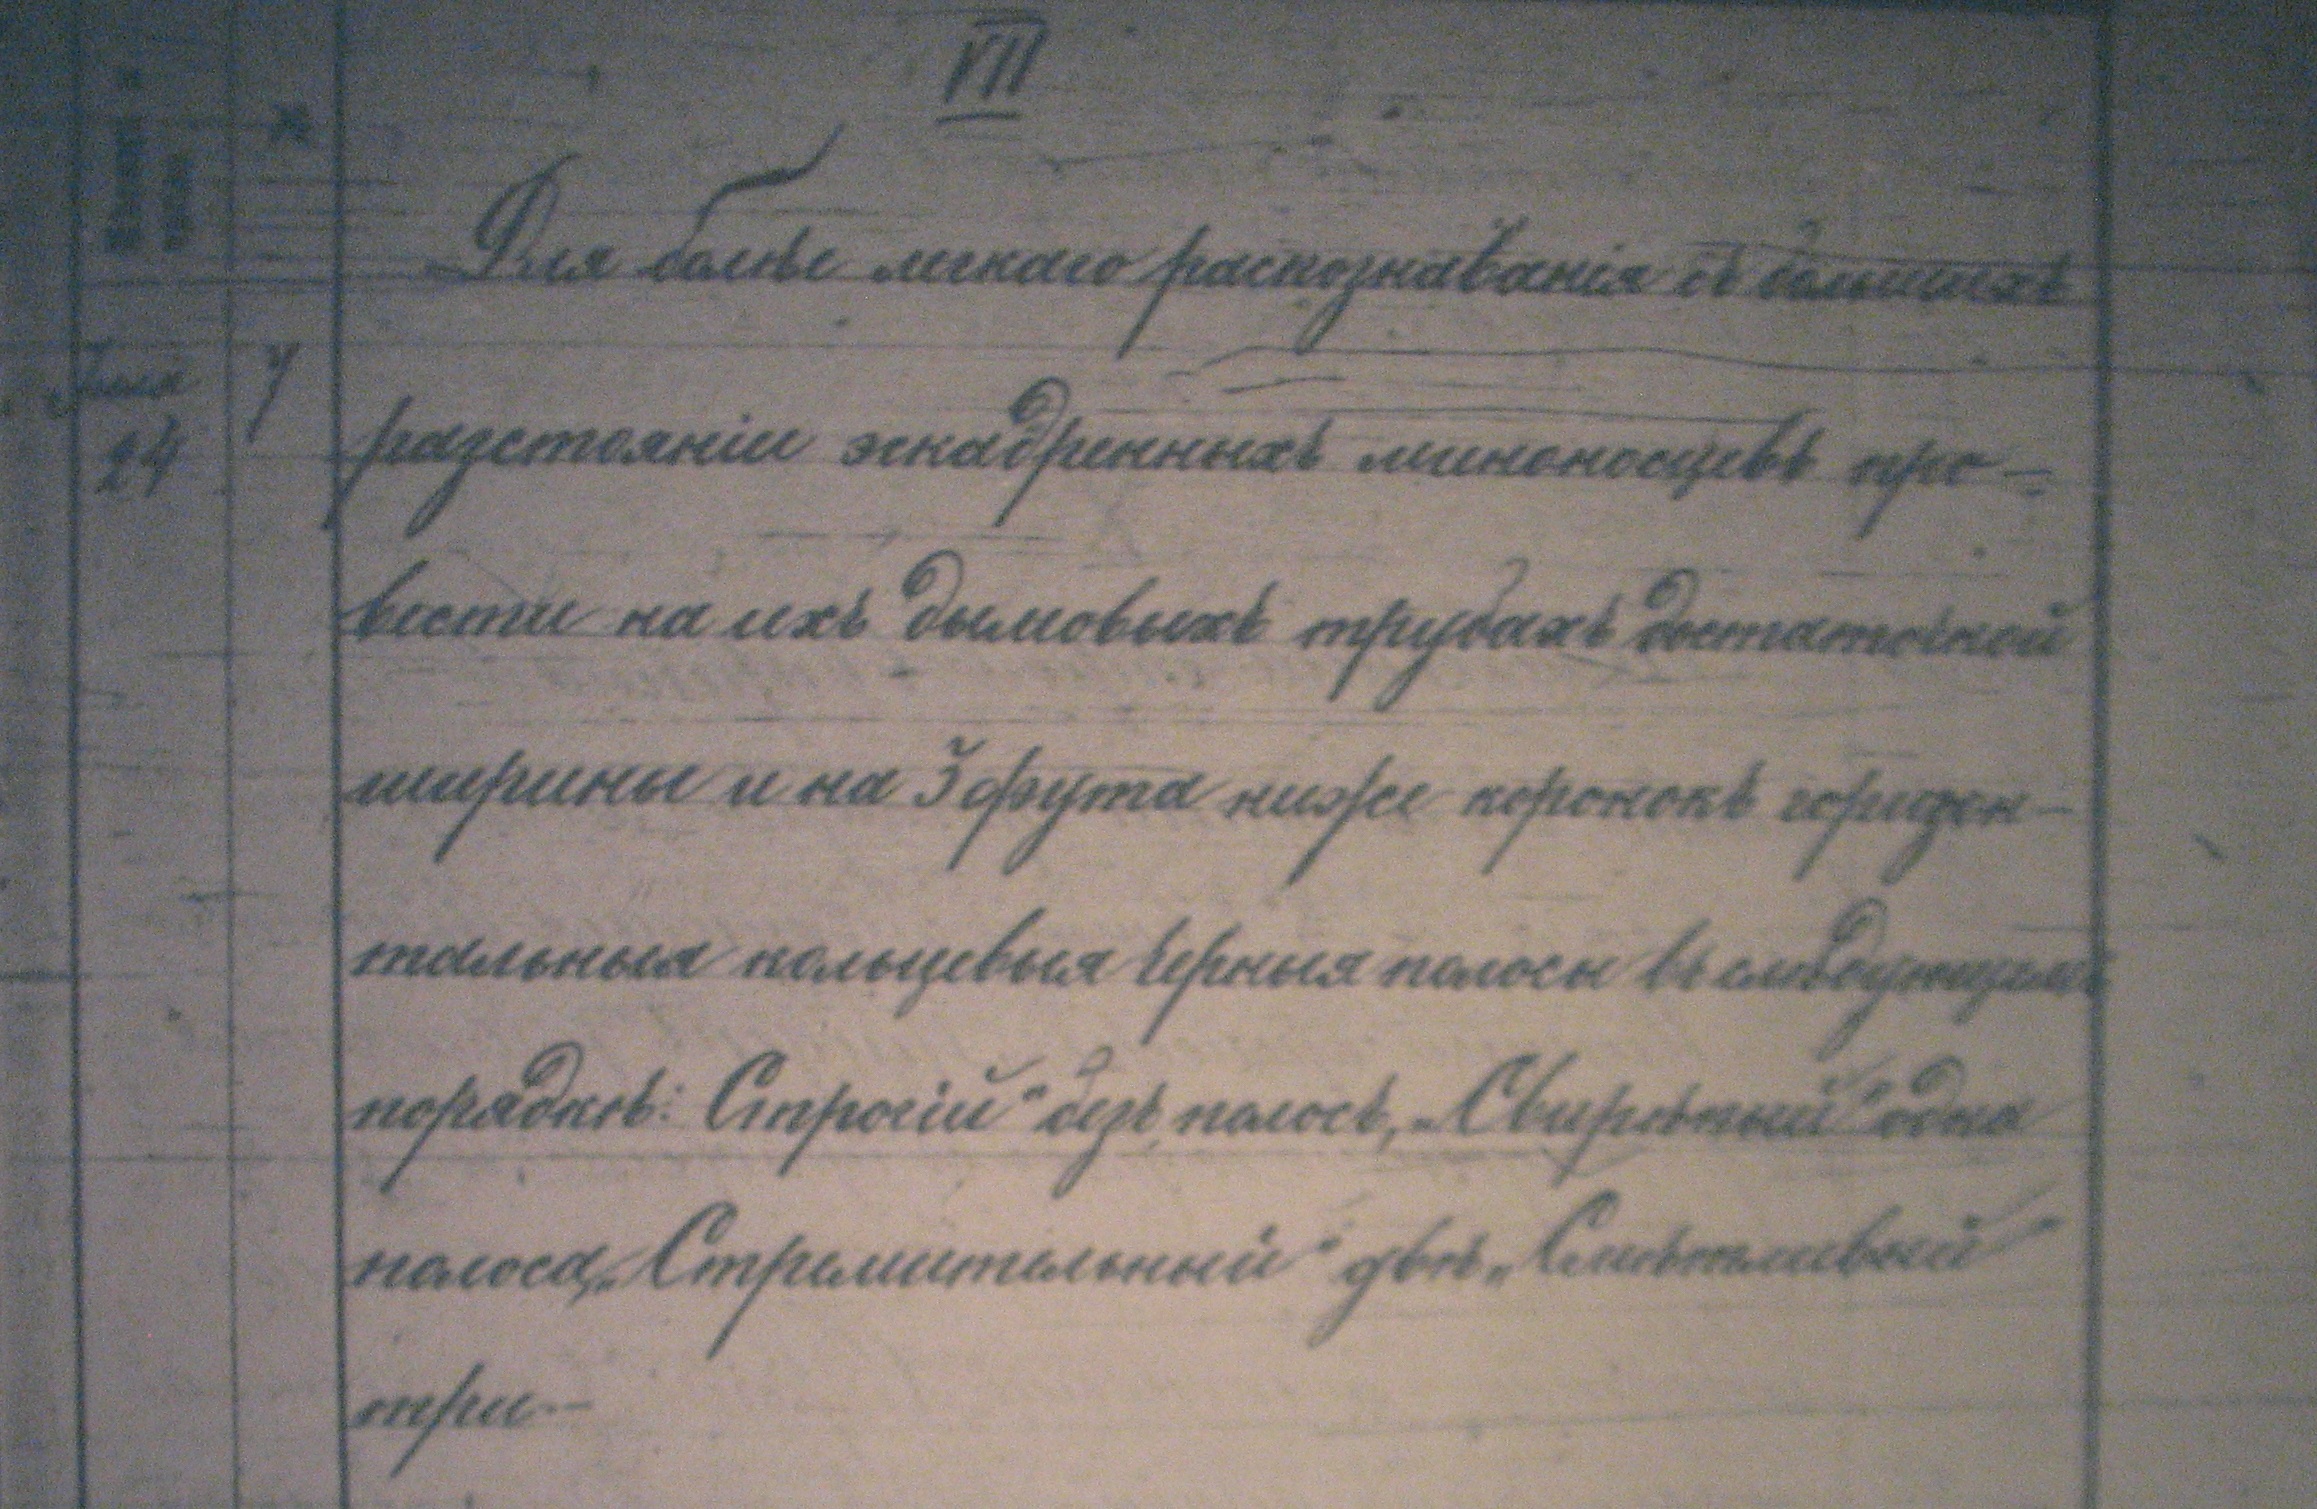 VII
Для болѣе легкаго распознаванія съ большихъ
Іюля 7
24
разстояніи эскадренныхъ миноносцевъ про-
вести на ихъ дымовыхъ трубахъ достаточной
ширины и на 3 фута ниже коронокъ горизон-
тальныя кольцевыя черныя полосы въ слѣдующемъ
порядкѣ: Строгій" безъ полосъ, „Свирѣпый" одна
полоса, „Стремительный" двѣ, „Смѣтливый"
три.-